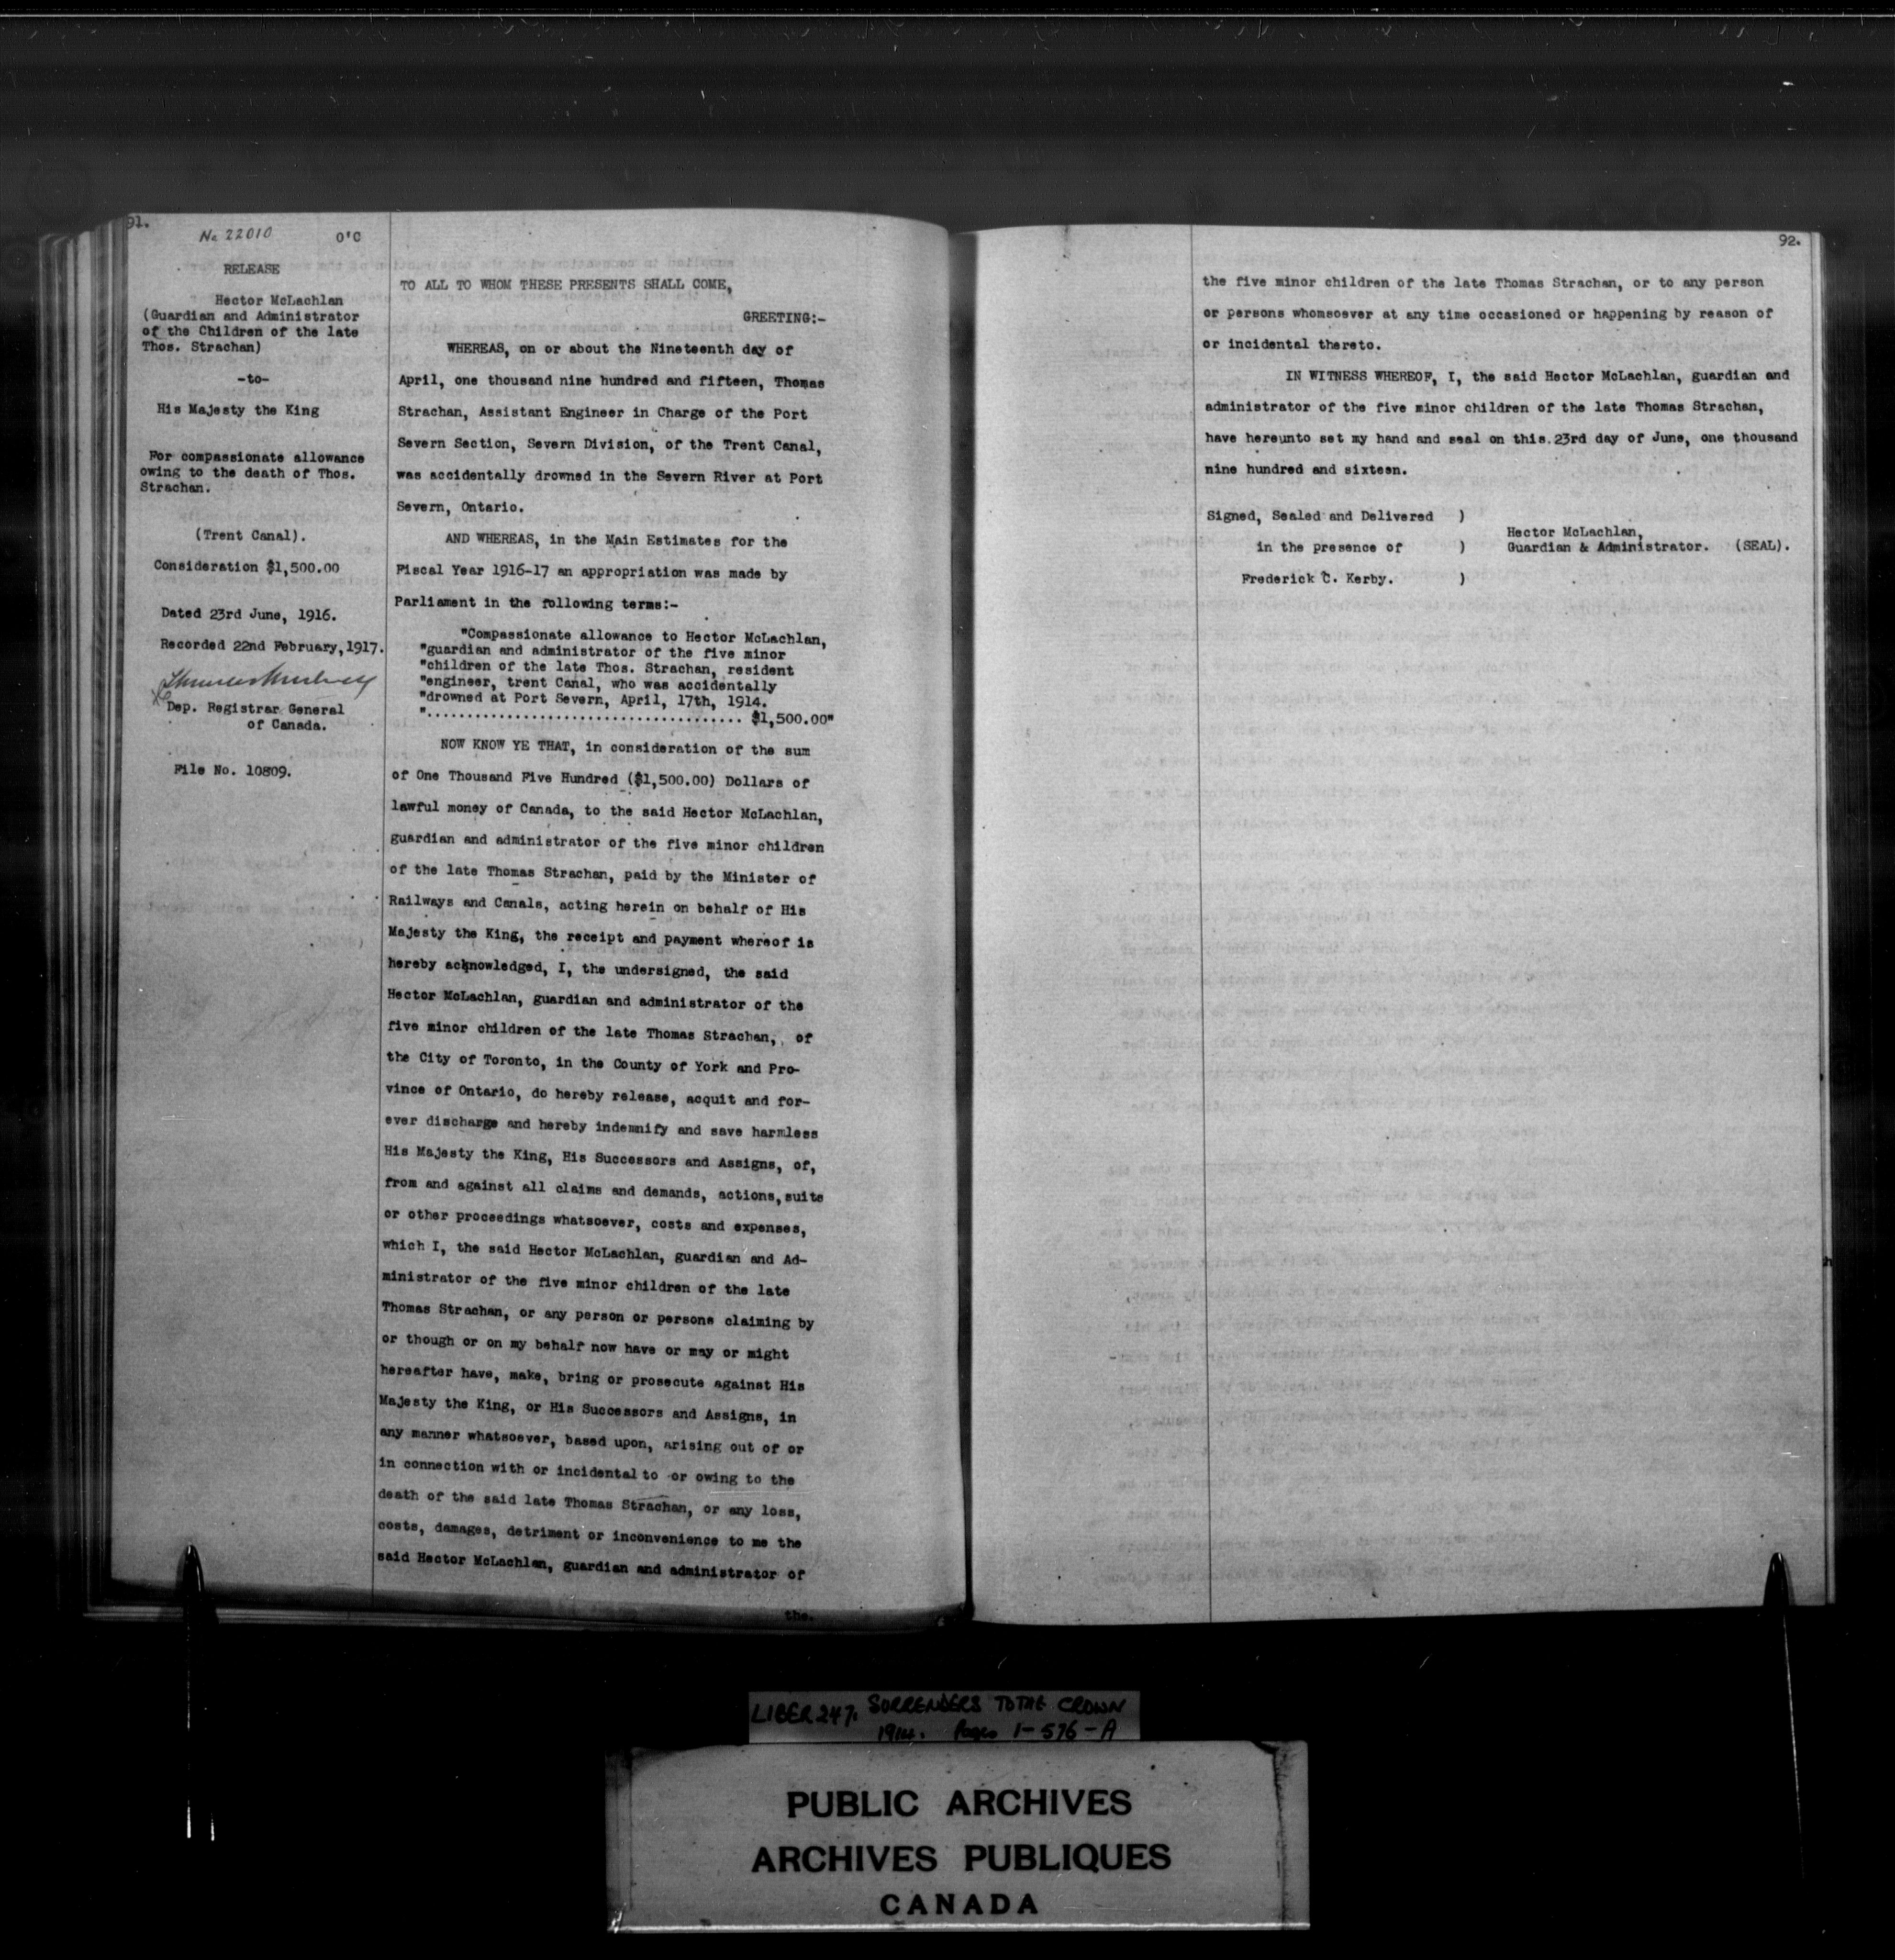 91.
No 22010 O'C
RELEASE
Hector McLachlan
(Guardian and Administrator
of the Children of the late
Thos. Strachan)
-to-
His Majesty the King
For compassionate allowance
owing to the death of Thos.
Strachan.
(Trent Canal).
Consideration $1,500.00
Dated 23rd June, 1916.
Recorded 22nd February,1917.
Dep. Registrar General
of Canada.
File No. 10809.
TO ALL TO WHOM THESE PRESENTS SHALL COME,
GREETING:-
WHEREAS, on or about the Nineteenth day of
April, one thousand nine hundred and fifteen, Thomas
Strachan, Assistant Engineer in Charge of the Port
Severn Section, Severn Division, of the Trent Canal,
was accidentally drowned in the Severn River at Port
Severn, Ontario.
AND WHEREAS, in the Main Estimates for the
Fiscal Year 1916-17 an appropriation was made by
Parliament in the following terms:-
"Compassionate allowance to Hector McLachlan,
"guardian and administrator of the five minor
"children of the late Thos. Strachan, resident
"engineer, trent Canal, who was accidentally
"drowned at Port Severn, April, 17th, 1914.
"....................................... $1,500.00"
NOW KNOW YE THAT, in consideration of the sum
of One Thousand Five Hundred ($1,500.00) Dollars of
lawful money of Canada, to the said Hector McLachlan,
guardian and administrator of the five minor children
of the late Thomas Strachan, paid by the Minister of
Railways and Canals, acting herein on behalf of His
Majesty the King, the receipt and payment whereof is
hereby acknowledged, I, the undersigned, the said
Hector McLachlan, guardian and administrator of the
five minor children of the late Thomas Strachan, of
the City of Toronto, in the County of York and Pro-
vince of Ontario, do hereby release, acquit and for-
ever discharge and hereby indemnify and save harmless
His Majesty the King, His Successors and Assigns, of,
from and against all claims and demands, actions,suits
or other proceedings whatsoever, costs and expenses,
which I, the said Hector McLachlan, guardian and Ad-
ministrator of the five minor children of the late
Thomas Strachan, or any person or persons claiming by
or though or on my behalf now have or may or might
hereafter have, make, bring or prosecute against His
Majesty the King, or His Successors and Assigns, in
any manner whatsoever, based upon, arising out of or
in connection with or incidental to or owing to the
death of the said late Thomas Strachan, or any loss,
costs, damages, detriment or inconvenience to me the
said Hector McLachlan, guardian and administrator of
the.
92.
the five minor children of the late Thomas Strachan, or to any person
or persons whomsoever at any time occasioned or happening by reason of
or incidental thereto.
IN WITNESS WHEREOF, I, the said Hector McLachlan, guardian and
administrator of the five minor children of the late Thomas Strachan,
have hereunto set my hand and seal on this 23rd day of June, one thousand
nine hundred and sixteen.
Signed, Sealed and Delivered )
in the presence of )
Frederick C. Kerby. )
Hector McLachlan,
Guardian & Administrator. (SEAL).
LIBER 247. SURRENDERS TO THE CROWN
1914. Pages 1-576-A
PUBLIC ARCHIVES
ARCHIVES PUBLIQUES
CANADA